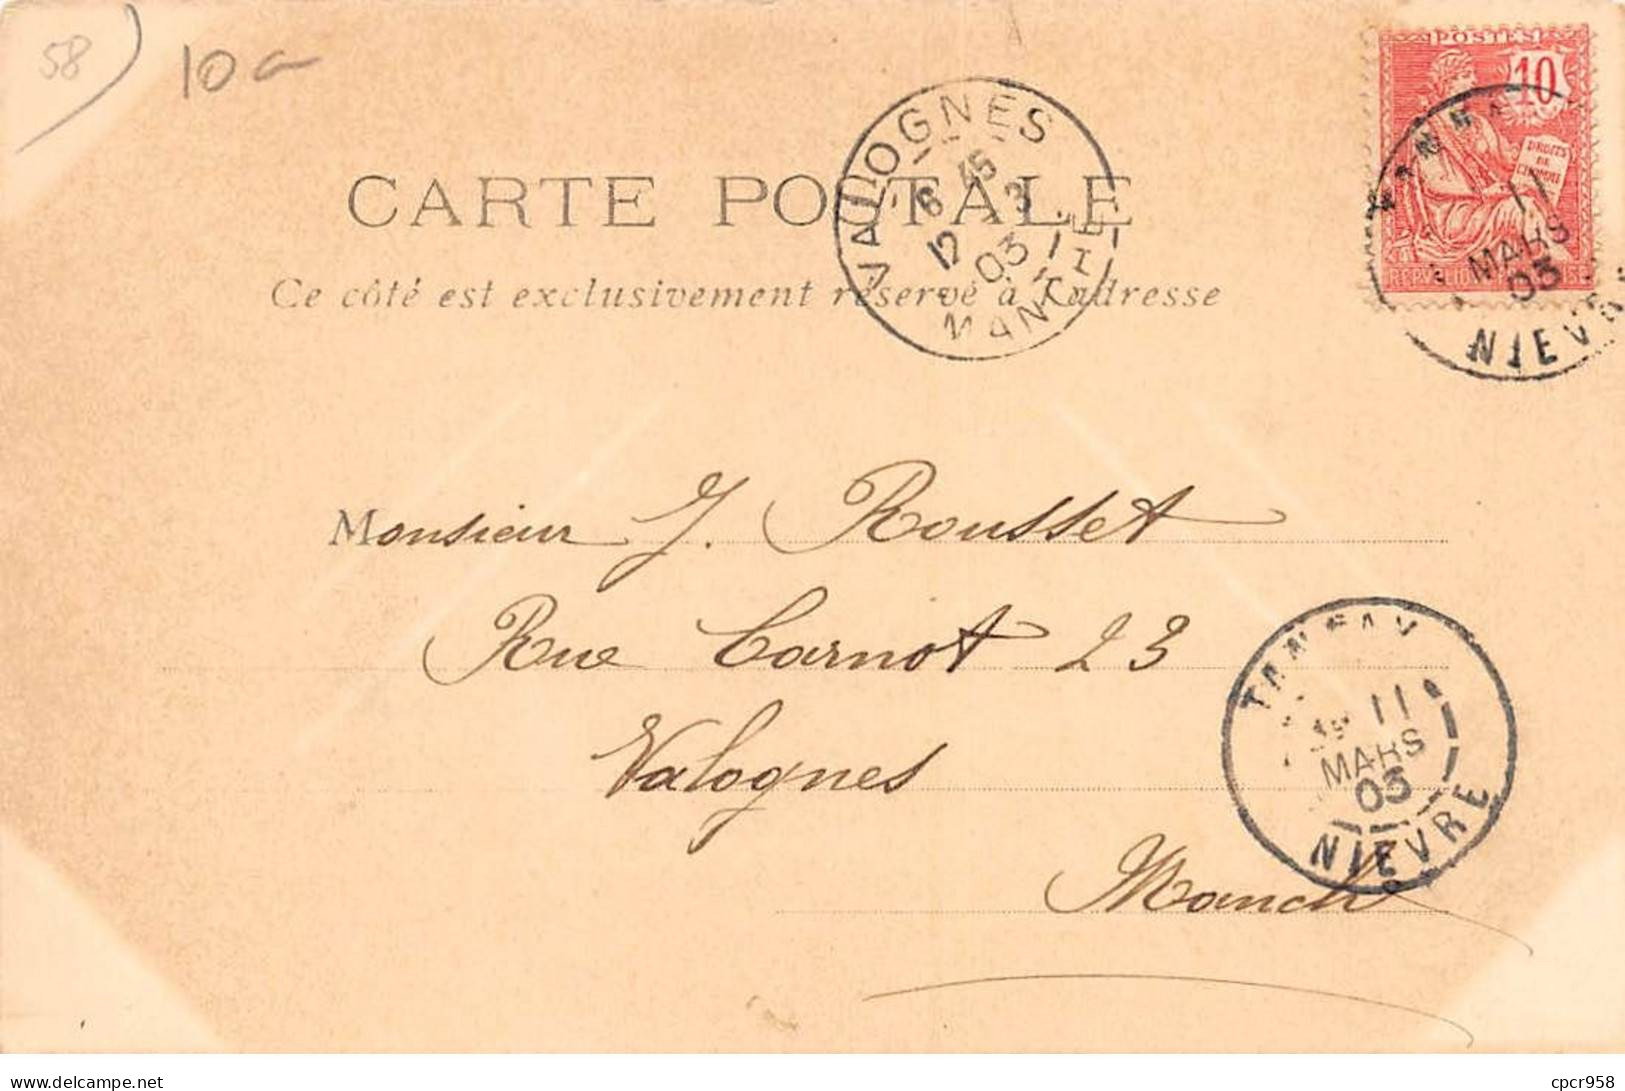 58
10
POSTES
10
DROITS
DE
L'HOMME
11
MARS
03
NIEVRE
VALOGNES
6 45
12 3
03
MANCHE
CARTE POSTALE
Ce côté est exclusivement réservé à l'adresse
Monsieur J. Rousset
Rue Carnot 23
Valognes
Manche
TANNAY
11
MARS
03
NIEVRE
www.delcampe.net
cpcr958